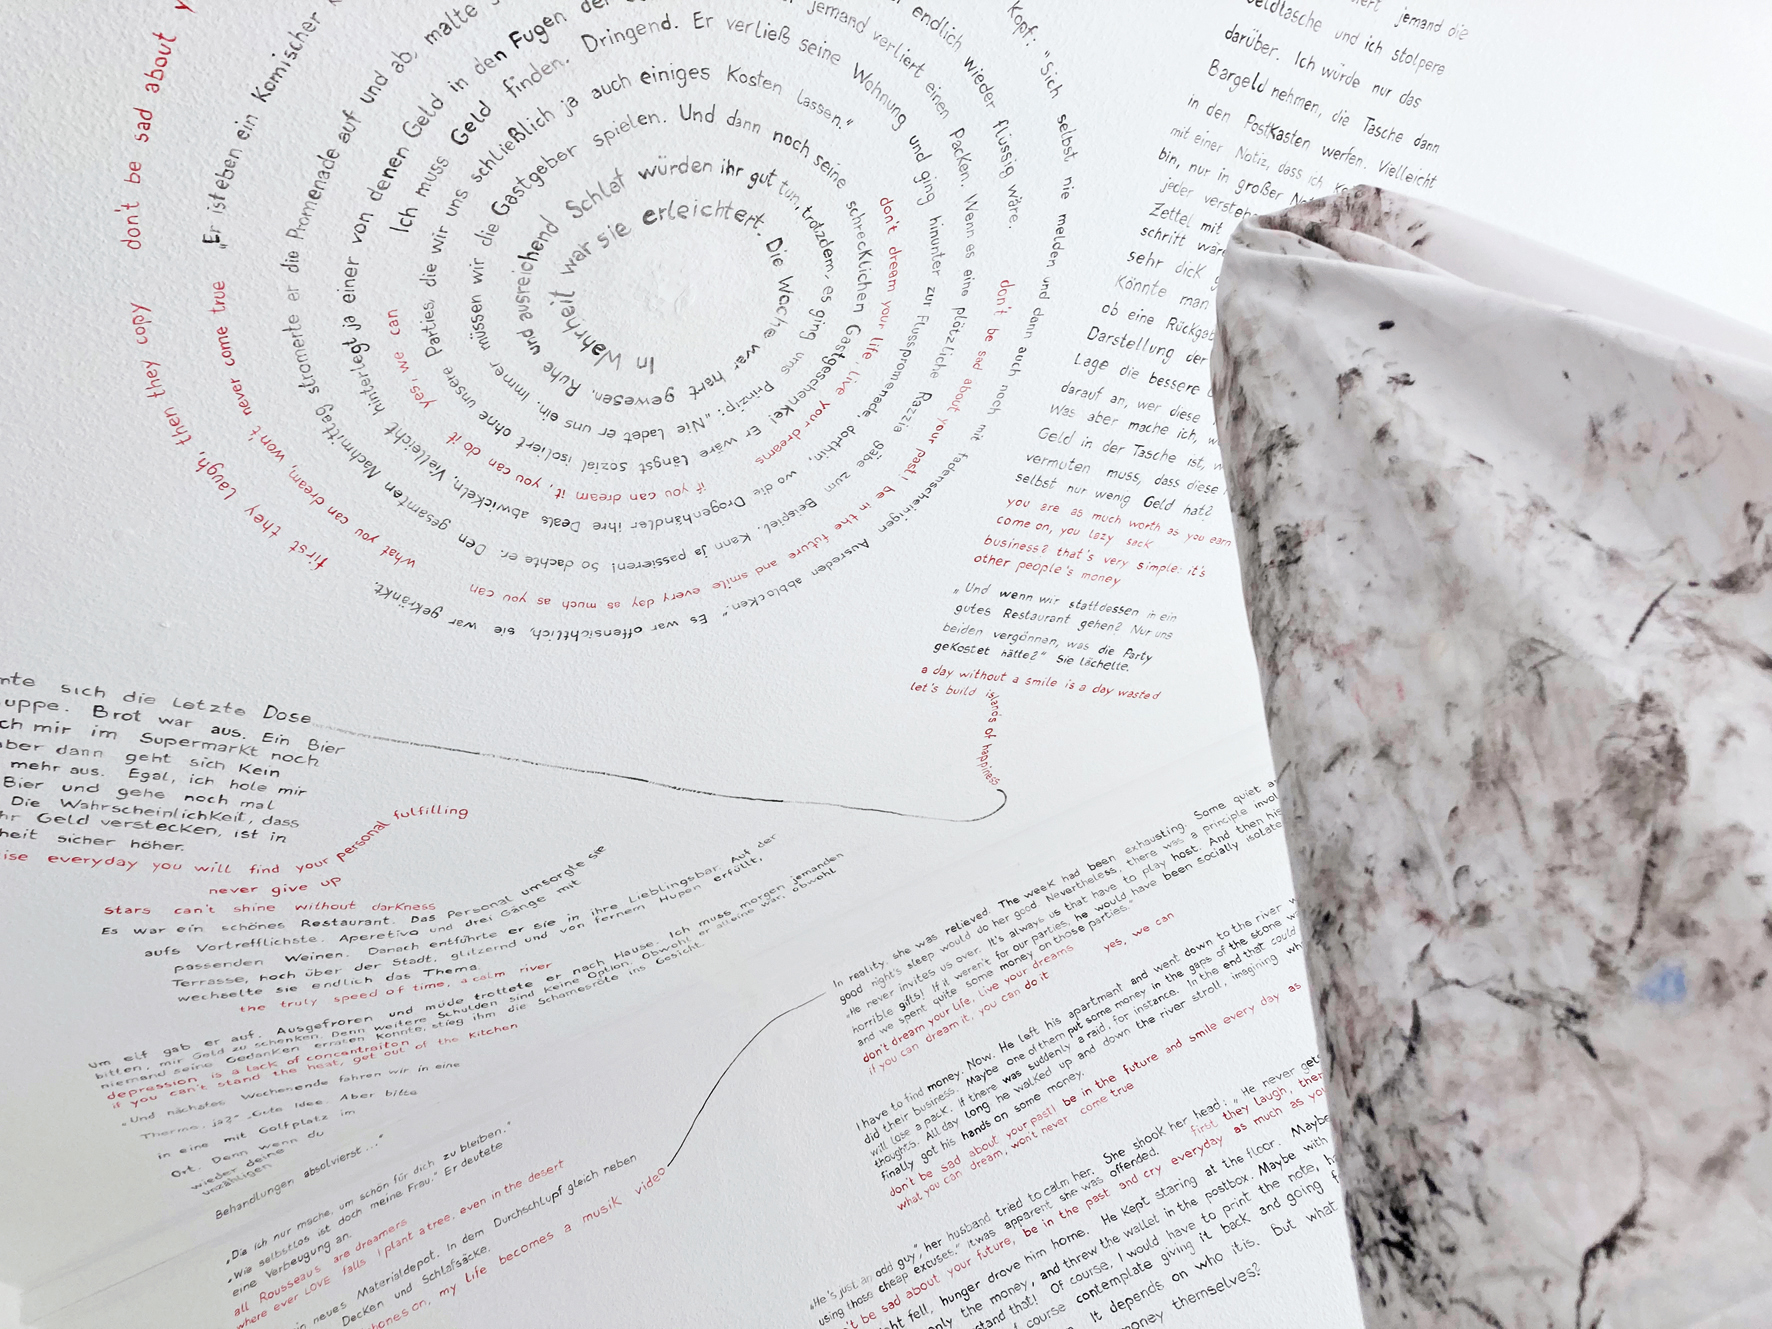 In Wahrheit war sie erleichtert. Die Woche war hart gewesen. Ruhe und ausreichend Schlaf würden ihr gut tun, trotzdem, es ging ums Prinzip: „Nie ladet er uns ein. Immer müssen wir die Gastgeber spielen. Und dann noch seine schrecklichen Gastgeschenke! Er wäre längst sozial isoliert ohne unsere Parties, die wir uns schließlich ja auch einiges Kosten lassen."
don't dream your life, live your dreams
if you can dream it, you can do it
yes, we can
Ich muss Geld finden. Dringend. Er verließ seine Wohnung und ging hinunter zur Flusspromenade, dorthin, wo die Drogenhändler ihre Deals abwickeln. Vielleicht hinterlegt ja einer von denen Geld in den Fugen der
jemand verliert einen Packen. Wenn es eine plötzliche Razzia gäbe zum Beispiel. Kann ja passieren! So dachte er. Den gesamten Nachmittag stromerte er die Promenade auf und ab, malte
endlich wieder flüssig wäre.
don't be sad about your past! be in the future and smile every day as much as you can
what you can dream, won't never come true
„Er ist eben ein Komischer
Kopf: „Sich selbst nie melden und dann auch noch mit fadenscheinigen Ausreden abblocken." Es war offensichtlich, sie war gekränkt.
first they laugh, then they copy
don't be sad about
jemand die
Geldtasche und ich stolpere
darüber. Ich würde nur das
Bargeld nehmen, die Tasche dann
in den Postkasten werfen. Vielleicht
mit einer Notiz, dass ich
bin, nur in großer
jeder versteh
Zettel mit
schrift wär
sehr dick
Könnte man
ob eine Rückgab
Darstellung der
Lage die bessere
darauf an, wer diese
Was aber mache ich, w
Geld in der Tasche ist, w
vermuten muss, dass diese
selbst nur wenig Geld hat?
you are as much worth as you earn
come on, you lazy sack
business? that's very simple: it's
other people's money
„Und wenn wir stattdessen in ein
gutes Restaurant gehen? Nur uns
beiden vergönnen, was die Party
gekostet hätte?" Sie lächelte.
a day without a smile is a day wasted
let's build islands of happiness
nte sich die letzte Dose
uppe. Brot war aus. Ein Bier
ch mir im Supermarkt noch
aber dann geht sich Kein
mehr aus. Egal, ich hole mir
Bier und gehe noch mal
Die Wahrscheinlichkeit, dass
hr Geld verstecken, ist in
heit sicher höher.
ise everyday you will find your personal fulfilling
never give up
stars can't shine without darkness
Es war ein schönes Restaurant. Das Personal umsorgte sie
aufs Vortrefflichste. Aperetivo und drei Gänge mit
passenden Weinen. Danach entführte er sie in ihre Lieblingsbar. Auf der
Terrasse, hoch über der Stadt, glitzernd und von fernem Hupen erfüllt,
wechselte sie endlich das Thema.
the truly speed of time, a calm river
um elf gab er auf. Ausgefroren und müde trottete er nach Hause. Ich muss morgen jemanden
bitten, mir Geld zu schenken. Denn weitere Schulden sind keine Option. Obwohl er alleine war, obwohl
niemand seine Gedanken erraten konnte, stieg ihm die Schamesröte ins Gesicht.
depression is a lack of concentraiton
if you can't stand the heat, get out of the kitchen
„Und nächstes Wochenende fahren wir in eine
Therme, ja?" „Gute Idee. Aber bitte
in eine mit Golfplatz im
Ort. Denn wenn du
wieder deine
unzähligen
Behandlungen absolvierst..."
„Die ich nur mache, um schön für dich zu bleiben."
„Wie selbstlos ist doch meine Frau." Er deutete
eine Verbeugung an.
all Rousseau's are dreamers
where ever LOVE falls I plant a tree, even in the desert
in neues Materialdepot. In dem Durchschlupf gleich neben
Decken und Schlafsäcke.
hones on, my life becomes a musik video
In reality she was relieved. The week had been exhausting. Some quiet a
good night's sleep would do her good. Nevertheless, there was a principle invol
„He never invites us over. It's always us that have to play host. And then his
horrible gifts! If it weren't for our parties, he would have been socially isolate
and we spent quite some money on those parties."
don't dream your life, live your dreams yes, we can
if you can dream it, you can do it
I have to find money. Now. He left his apartment and went down to the river w
did their business. Maybe one of them put some money in the gaps of the stone w
will lose a pack. If there was suddenly a raid, for instance. In the end that could
thoughts. All day long he walked up and down the river stroll, imagining wh
finally got his hands on some money.
don't be sad about your past! be in the future and smile every day as
what you can dream, won't never come true
„He's just an odd guy", her husband tried to calm her. She shook her head: „He never gets
using those cheap excuses." it was apparent she was offended. first they laugh, ther
't be sad about your future, be in the past and cry everyday as much as you
ht fell, hunger drove him home. He kept staring at the floor. Maybe
only the money, and threw the wallet in the postbox. Maybe with
stand that! Of course, I would have to print the note, h
f course contemplate giving it back and going f
It depends on who it is. But what
money themselves?